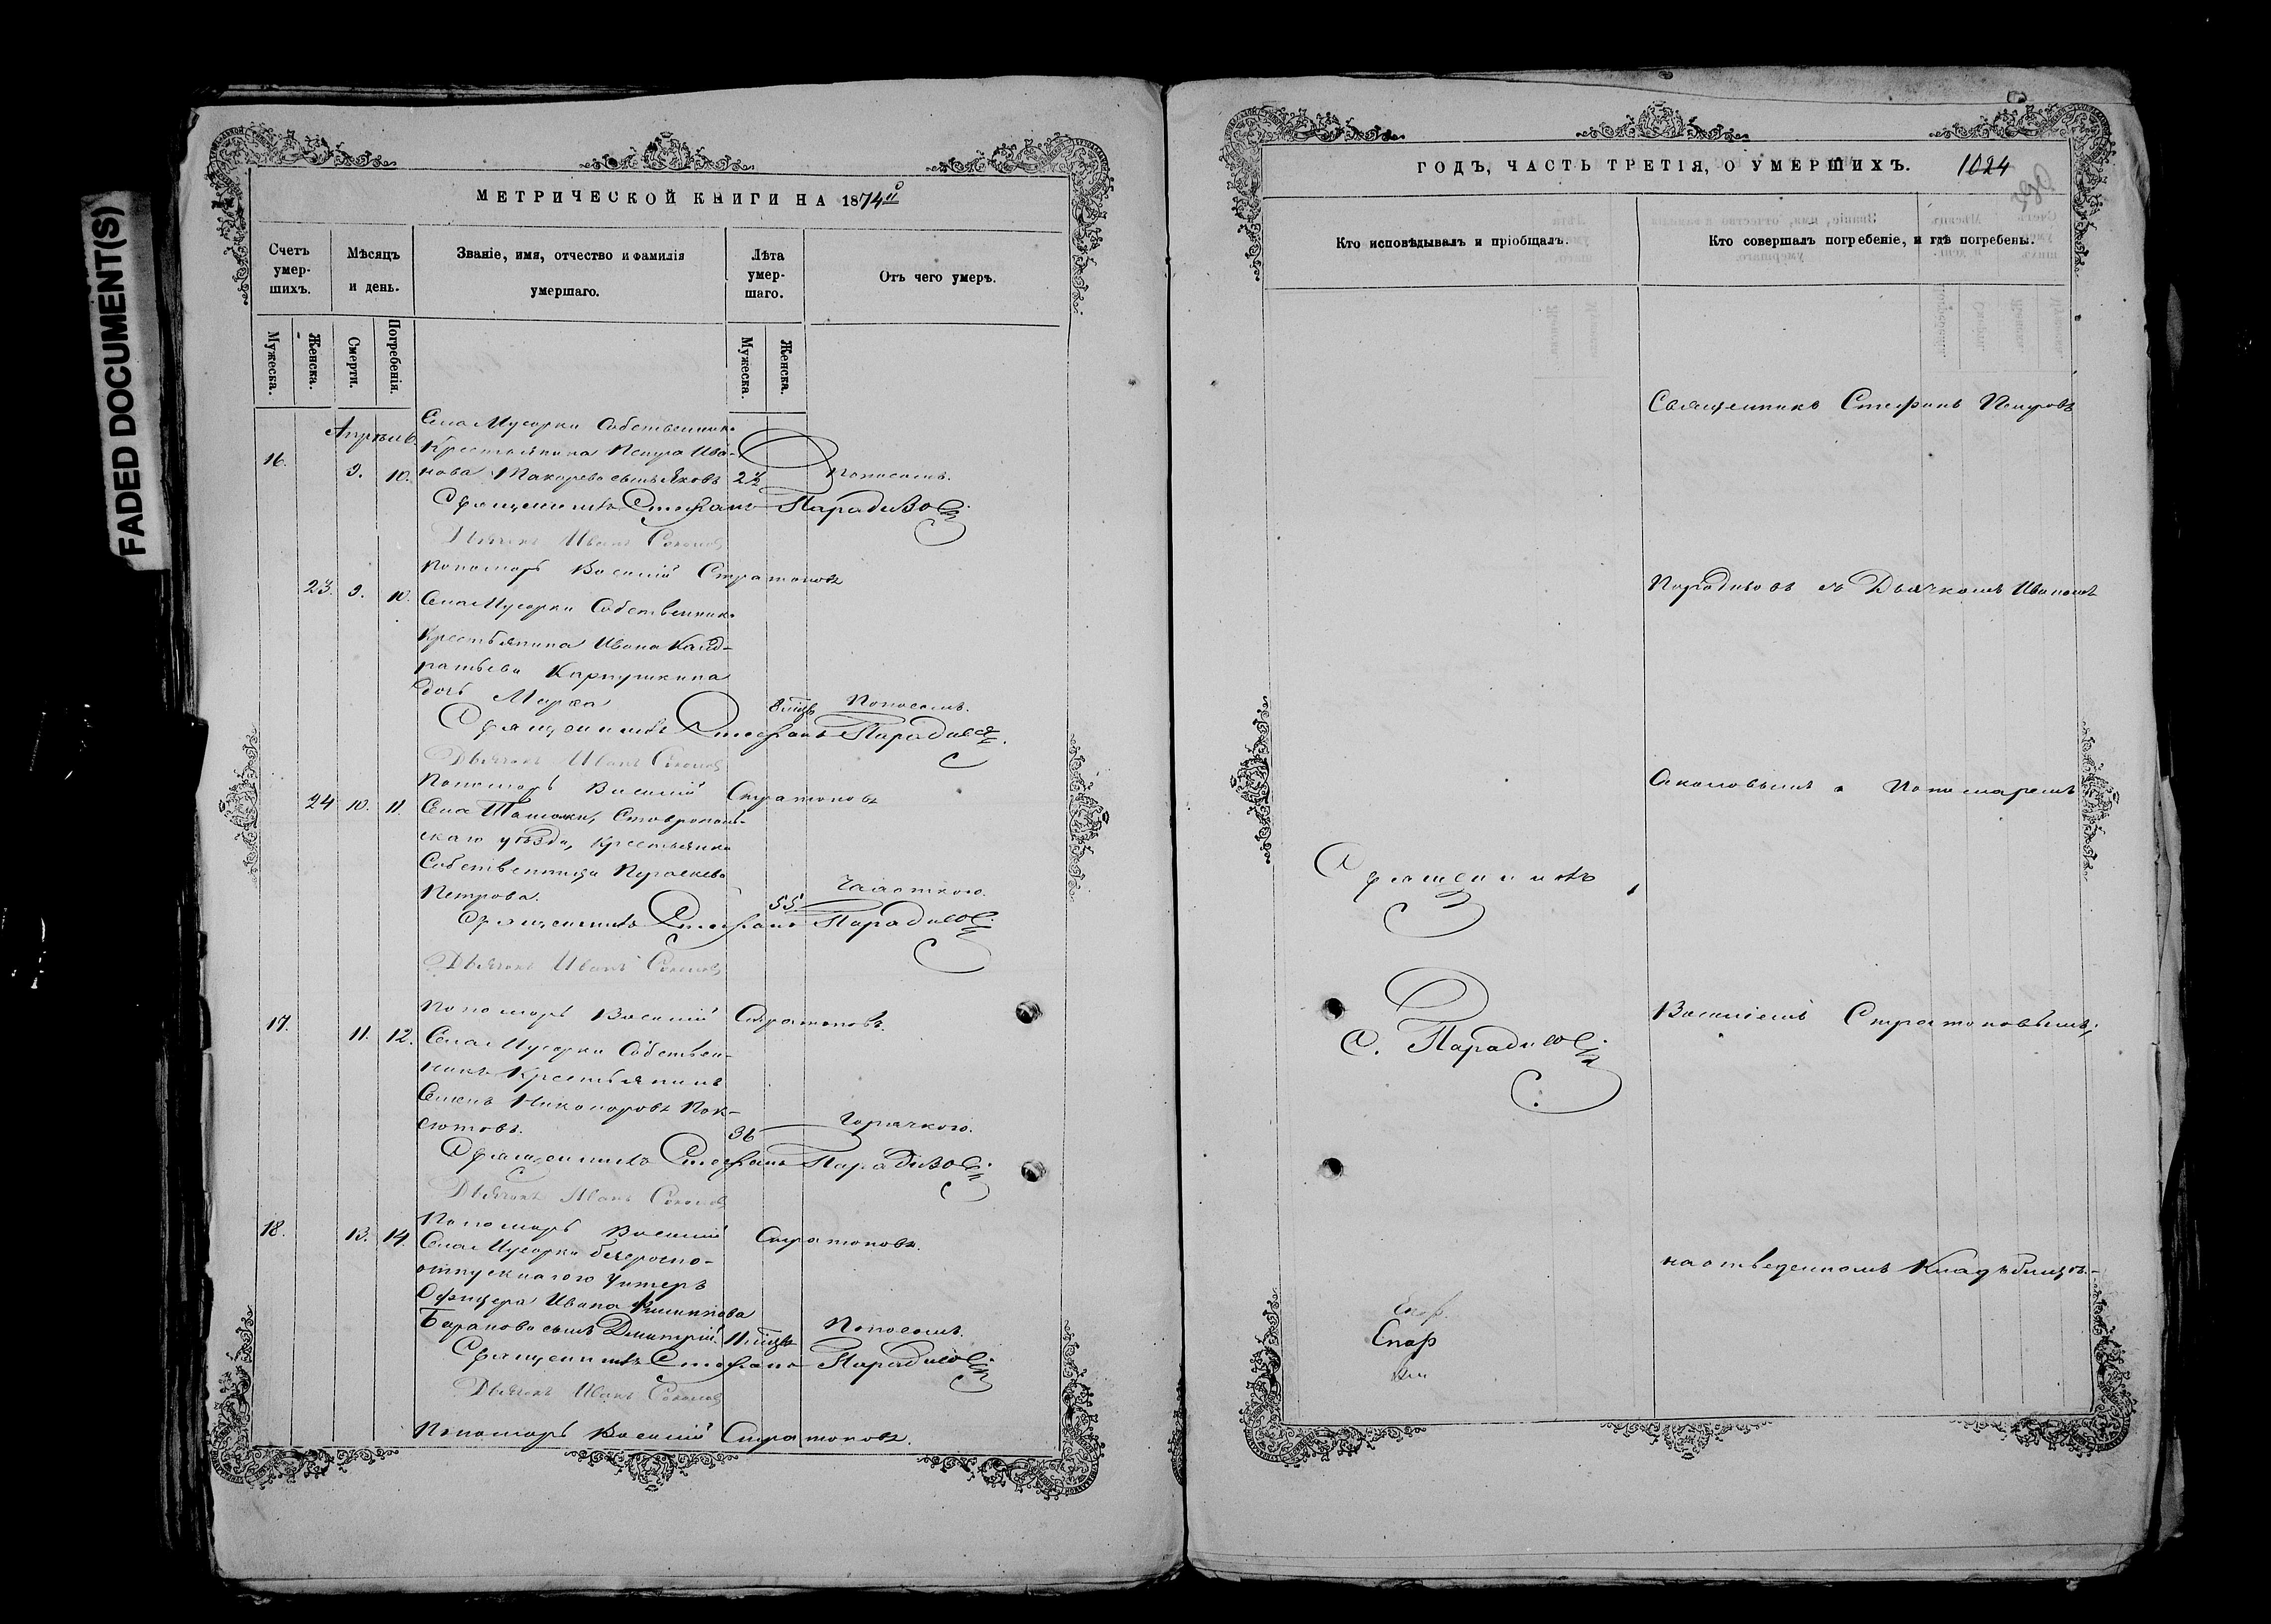 FADED DOCUMENT(S)
МЕТРИЧЕСКОЙ КНИГИ НА 1874й
Счетъ умер-шихъ.
Мѣсяцъ и день.
Званіе, имя, отчество и фамилія умершаго.
Лѣта умер-шаго.
Отъ чего умеръ.
Мужеска.
Женска.
Смерти.
Погребенія.
Мужеска.
Женска.
Апрѣль.
Села Мусорки Собственника
16. 9. 10.
Крестьянина Петра Ива-
нова Макарова сынъ Яковъ 2½ Поносомъ.
Священникъ Стефанъ Парадизовъ
Дьячекъ Иванъ Соколовъ
Пономарь Василій Стратоновъ
23. 9. 10. Села Мусорки Собственника
Крестьянина Ивана Канд-
ратьева Карпушкина
дочь Марѳа 8 мѣц Поносомъ.
Священникъ Стефанъ Парадизовъ.
Дьячекъ Иванъ Соколовъ
Пономарь Василій Стратоновъ
24 10. 11. Села Ташолки, Ставрополь-
скаго уѣзда, Крестьянка
Собственница Параскева
Петрова. 55. Чахоткою.
Священникъ Стефанъ Парадизовъ
Дьячекъ Иванъ Соколовъ
Пономарь Василій Стратоновъ.
17. 11. 12. Села Мусорки Собствен-
никъ Крестьянинъ
Семенъ Никаноровъ Пок-
сютовъ. 36 Горячкою.
Священникъ Стефанъ Парадизовъ
Дьячекъ Иванъ Соколовъ
Пономарь Василій Стратоновъ.
18. 13. 14. Села Мусорки безсрочно-
отпускнагого Унтеръ
Офицера Ивана Филиппова
Баранова сынъ Дмитрій. 11 мѣцв Поносомъ.
Священникъ Стефанъ Парадизовъ
Дьячекъ Иванъ Соколовъ
Пономарь Василій Стратоновъ.
ГОДЪ, ЧАСТЬ ТРЕТІЯ, О УМЕРШИХЪ. 1024
Кто исповѣдывалъ и пріобщалъ.
Кто совершалъ погребеніе, и гдѣ погребены.
Священникъ Стефанъ Петровъ
Парадизовъ съ Дьячкомъ Иваномъ
Соколовымъ и Пономаремъ
Священникъ
Василіемъ Стратоновымъ,
С. Парадизовъ
на отведенномъ Кладбищѣ.